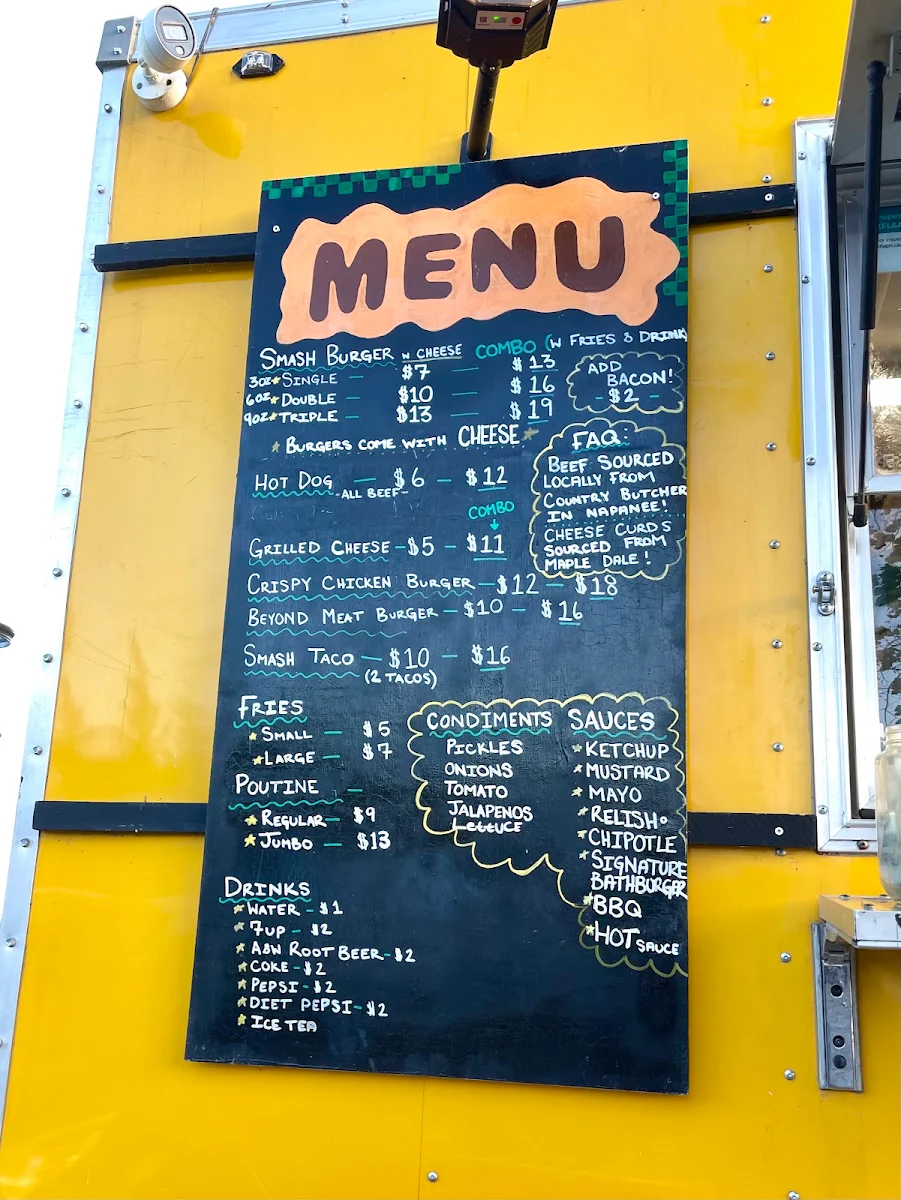 MENU
SMASH BURGER W CHEESE COMBO (W FRIES & DRINK)
3OZ SINGLE — $7 — $13
6OZ DOUBLE — $10 $16
9OZ TRIPLE — $13 — $19
ADD
BACON!
- $2 -
BURGERS COME WITH CHEESE
HOT DOG — $6 — $12
-ALL BEEF-
FAQ:
BEEF SOURCED
LOCALLY FROM
COUNTRY BUTCHER
IN NAPANEE!
CHEESE CURDS
SOURCED FROM
MAPLE DALE!
COMBO
GRILLED CHEESE — $5 — $11
CRISPY CHICKEN BURGER — $12 — $18
BEYOND MEAT BURGER — $10 — $16
SMASH TACO — $10 — $16
(2 TACOS)
FRIES
SMALL — $5
LARGE — $7
POUTINE —
REGULAR — $9
JUMBO — $13
CONDIMENTS
PICKLES
ONIONS
TOMATO
JALAPENOS
LETTUCE
SAUCES
KETCHUP
MUSTARD
MAYO
RELISH
CHIPOTLE
SIGNATURE
BATHBURGER
BBQ
HOT SAUCE
DRINKS
WATER - $1
7UP - $2
A&W ROOT BEER - $2
COKE - $2
PEPSI - $2
DIET PEPSI - $2
ICE TEA